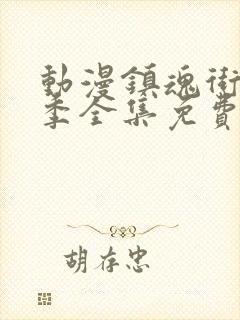 動漫鎮魂街
季全集免費
胡存忠